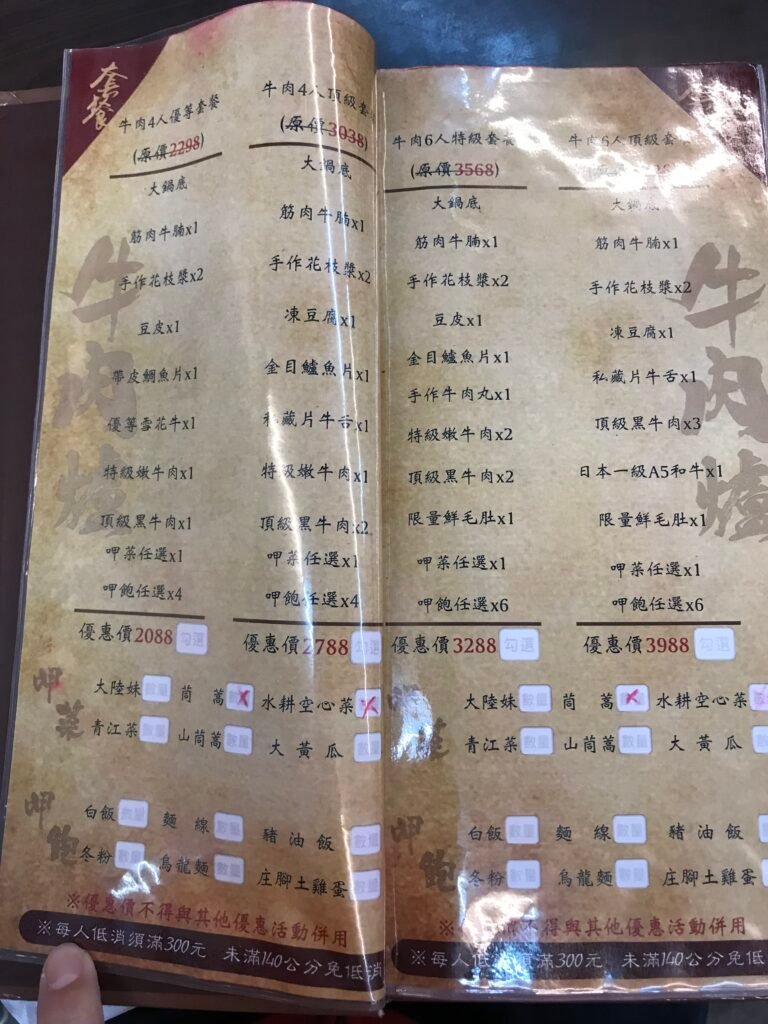 套餐
牛肉4人優等套餐
(原價2298)
大鍋底
筋肉牛腩x1
手作花枝漿x2
豆皮x1
帶皮鯛魚片x1
優等雪花牛x1
特級嫩牛肉x1
頂級黑牛肉x1
呷菜任選x1
呷飽任選x4
優惠價2088 勾選
牛肉4人頂級套
(原價3038)
大鍋底
筋肉牛腩x1
手作花枝漿x2
凍豆腐x1
金目鱸魚片x1
私藏片牛舌x1
特級嫩牛肉x1
頂級黑牛肉x2
呷菜任選x1
呷飽任選x4
優惠價2788 勾選
呷菜
大陸妹 數量 茼蒿 數 水耕空心菜
青江菜 數量 山茼蒿 數量 大黃瓜 數量
呷飽
白飯 數量 麵線 數量 豬油飯 數量
冬粉 數量 烏龍麵 數量 庄腳土雞蛋 數量
※優惠價不得與其他優惠活動併用
※每人低消須滿300元 未滿140公分免低消
牛肉6人特級套餐
(原價3568)
大鍋底
筋肉牛腩x1
手作花枝漿x2
豆皮x1
金目鱸魚片x1
手作牛肉丸x1
特級嫩牛肉x2
頂級黑牛肉x2
限量鮮毛肚x1
呷菜任選x1
呷飽任選x6
優惠價3288 勾選
牛肉6人頂級套
大鍋底
筋肉牛腩x1
手作花枝漿x2
凍豆腐x1
私藏片牛舌x1
頂級黑牛肉x3
日本一級A5和牛x1
限量鮮毛肚x1
呷菜任選x1
呷飽任選x6
優惠價3988 勾選
呷菜
大陸妹 數量 茼蒿 水耕空心菜
青江菜 數量 山茼蒿 數量 大黃瓜
呷飽
白飯 數量 麵線 數量 豬油飯
冬粉 數量 烏龍麵 數量 庄腳土雞蛋
不得與其他優惠活動併用
※每人低消須滿300元 未滿140公分免低
牛肉爐
牛肉爐